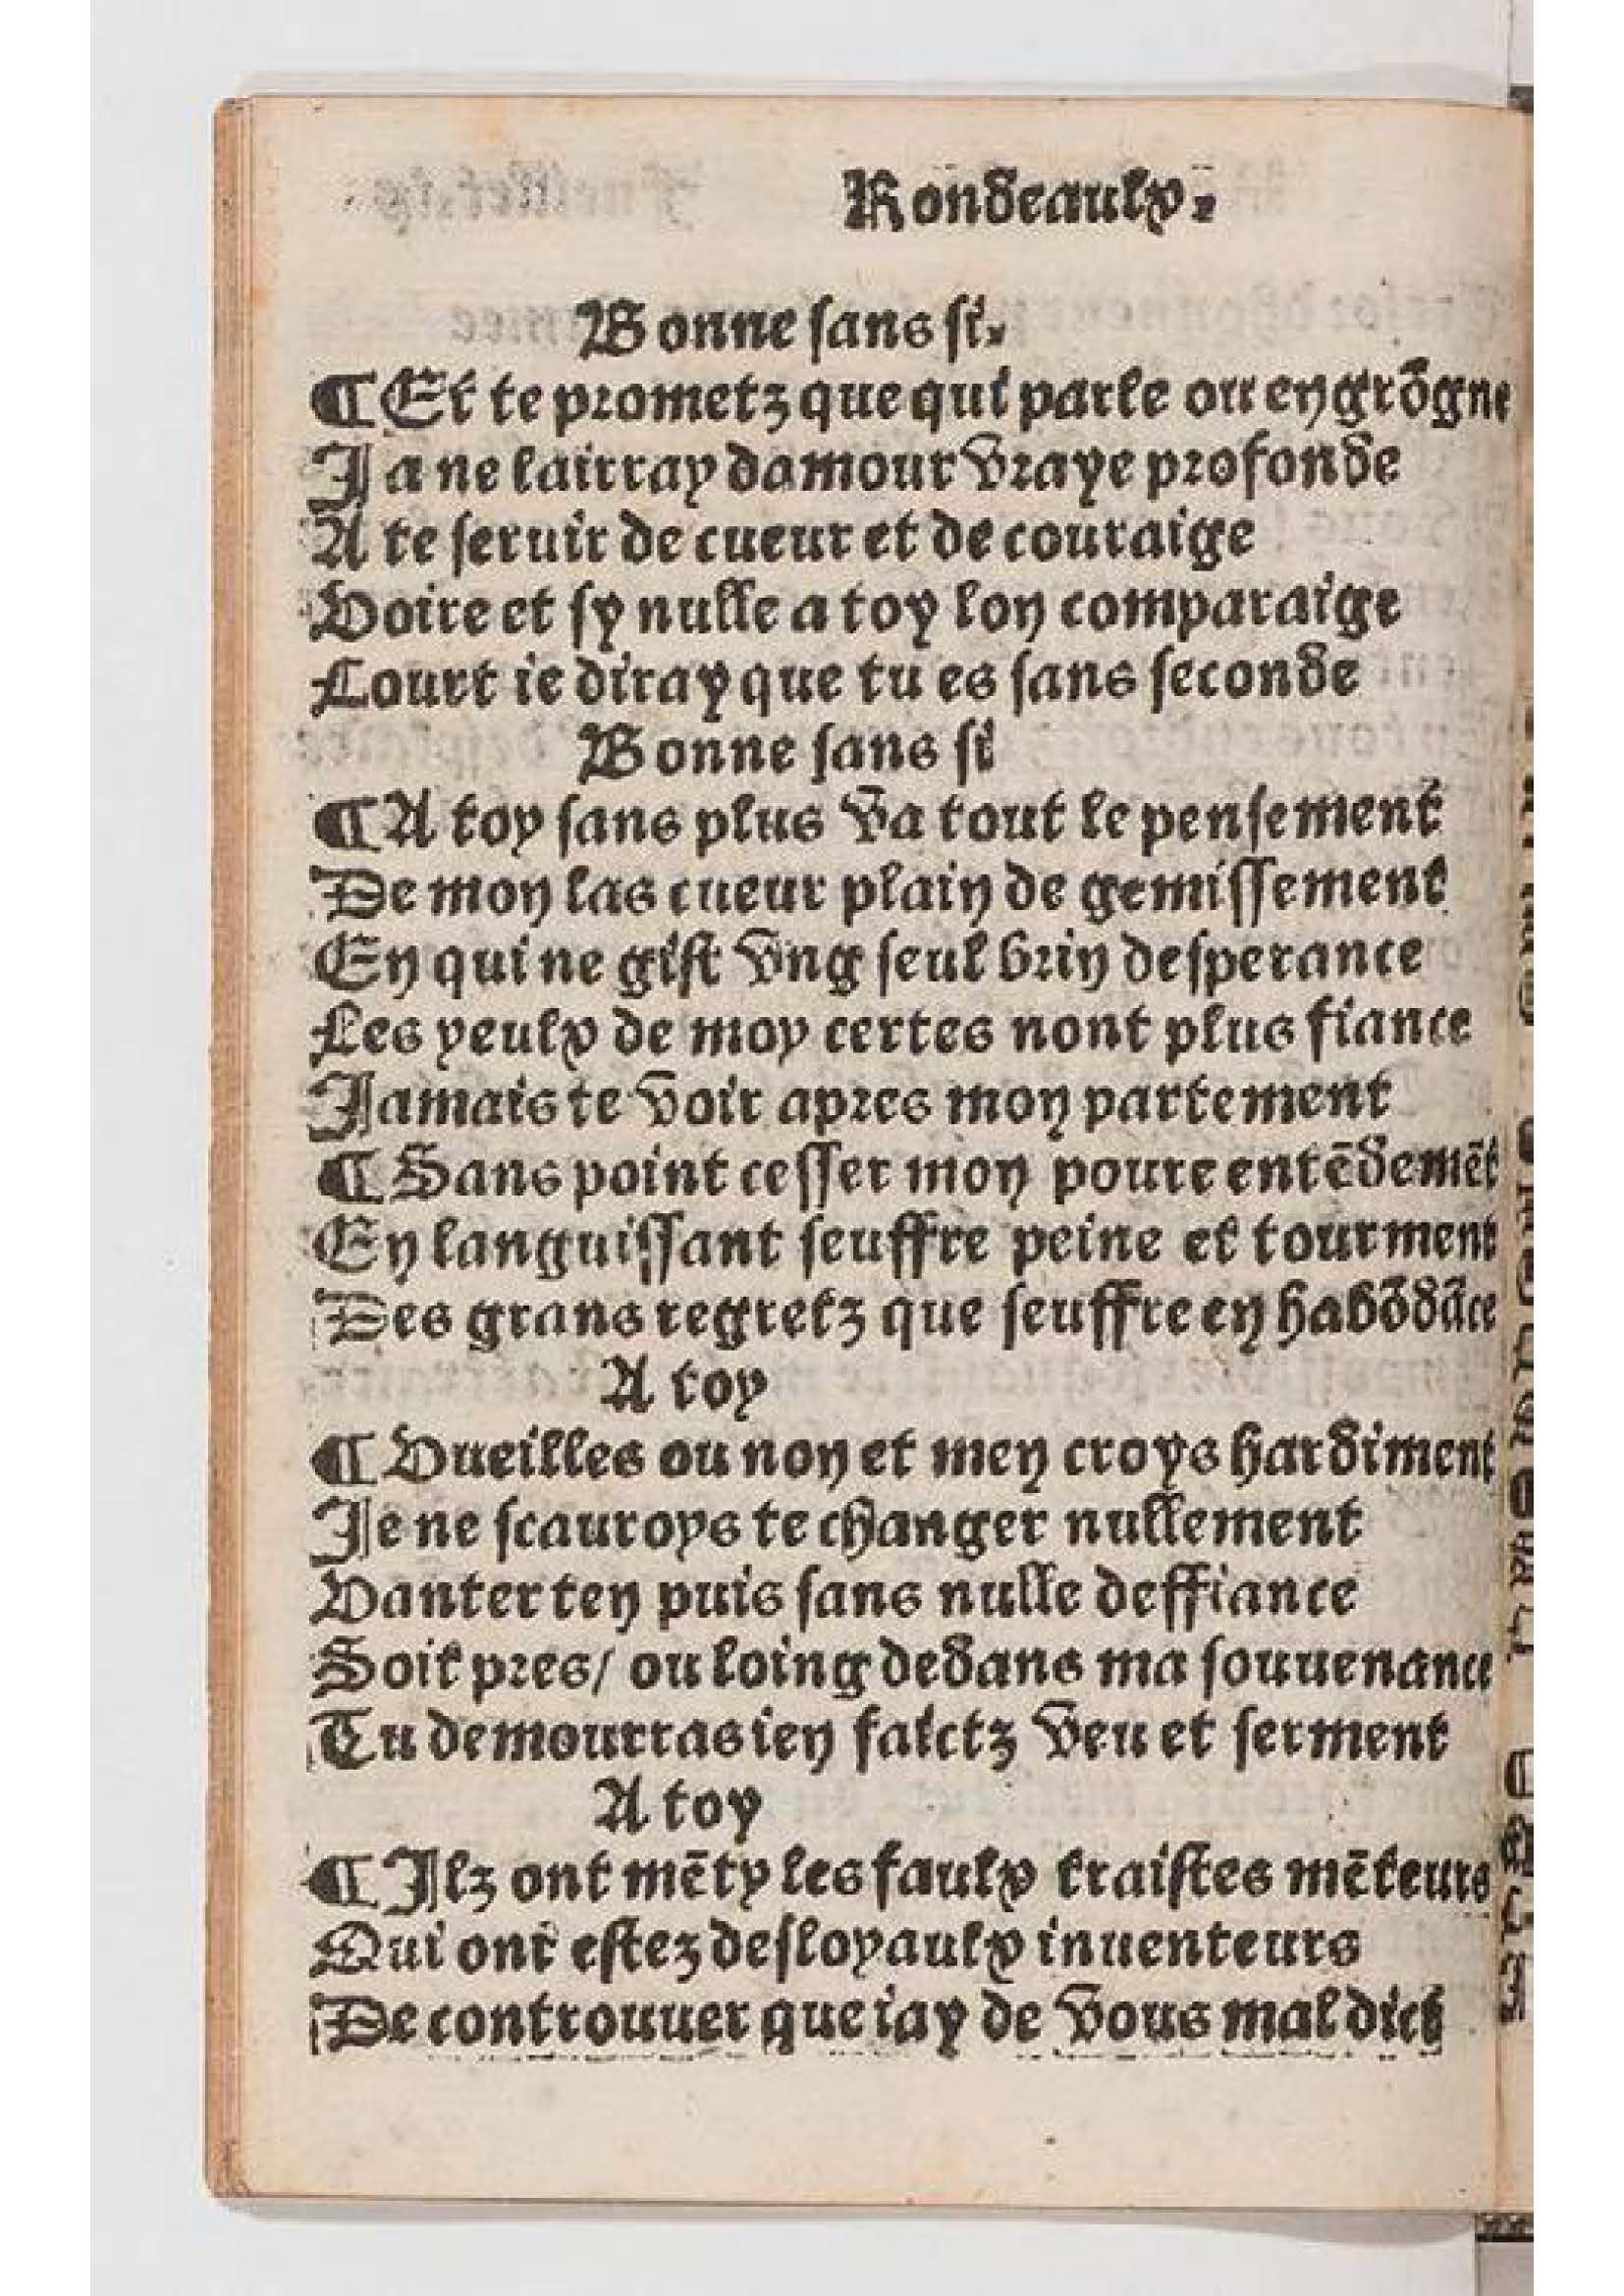 Rondeaulx.
Bonne sans si.
¶ Et te prometz que qui parle ou en grõgne
Ja ne lairray damour vraye profonde
A te seruir de cueur et de couraige
Voire et sy nulle a toy lon comparaige
Court ie diray que tu es sans seconde
Bonne sans si
¶ A toy sans plus va tout le pensement
De mon las cueur plain de gemissement
En qui ne gist vng seul brin desperance
Les yeulx de moy certes nont plus fiance
Jamais te voir apres mon partement
¶ Sans point cesser mon poure entẽdemẽt
En languissant seuffre peine et tourment
Des grans regretz que seuffre en habõdãce
A toy
¶ Vueilles ou non et men croys hardiment
Je ne scauroys te changer nullement
Vanter ten puis sans nulle deffiance
Soit pres/ ou loing dedans ma souuenance
Tu demourras ien faictz veu et serment
A toy
¶ Jlz ont mẽty les faulx traistes mẽteurs
Qui ont estez desloyaulx inuenteurs
De controuuer que iay de vous mal dict